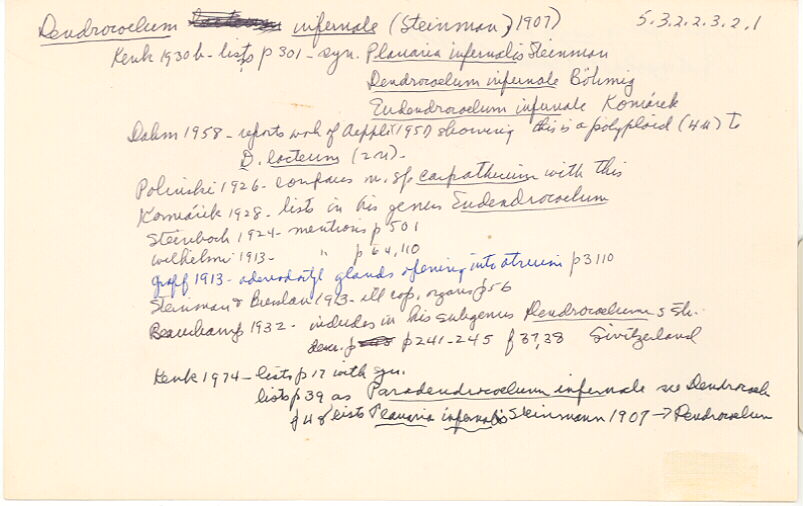 Dendrocoelum lacteum infernale (Steinman, 1907) 5.3.2.2.3.2.1
Kenk 1930b - lists p 301 - syn. Planaria infernalis Steinman
Dendrocoelum infernale Böhmig
Eudendrocoelum infernale Komárek
Dahm 1958 - reports work of Aeppli 1951 showing this is a polyploid (4n) to
D. lacteum (2n).
Polinski 1926 - compares n. sp. carpathicum with this
Komárik 1928 - lists in his genus Eudendrocoelum
Steinboch 1924 - mentions p 501
Wilhelmi 1913 - " p 64, 110
Graff 1913 - adenodactyl glands opening into atrium p 3110
Steinman & Bresslau 1913 - ill cop. organs p 56
Beauchamp 1932 - includes in his subgenus Dendrocoelum s str.
descr. p p 241-245 f 37,38 Switzerland
Kenk 1974 - lists p 17 with syn.
lists p 39 as Paradendrocoelum infernale see Dendrocoel
p 48 lists Planaria infernalis Steinmann 1907 → Dendrocoelum